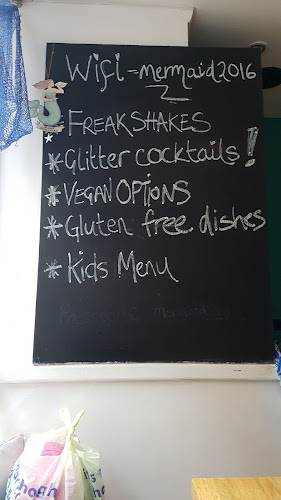 Wifi - mermaid2016
FREAKSHAKES
* Glitter cocktails!
* VEGAN OPTIONS
* Gluten free dishes
* Kids Menu